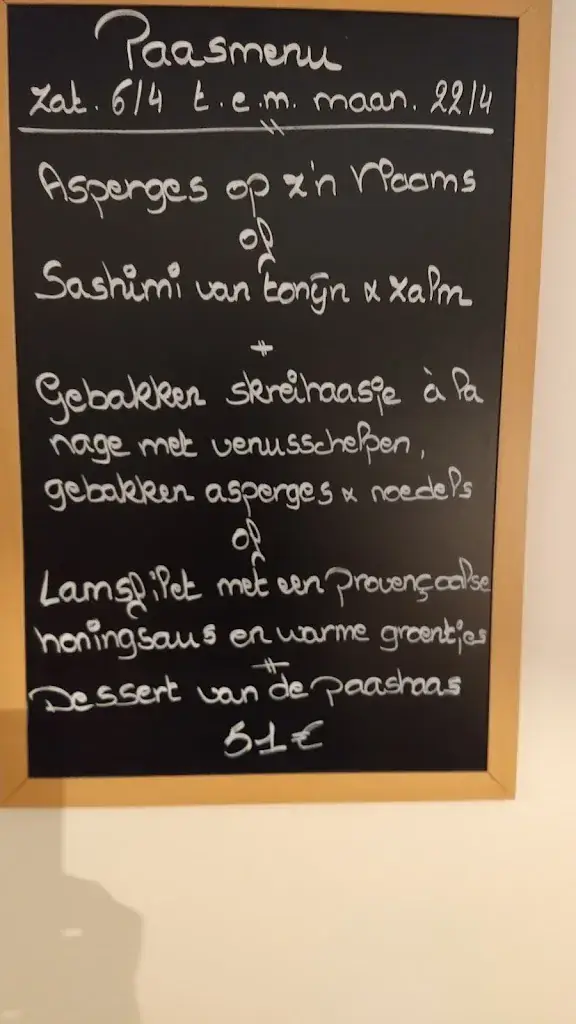 Paasmenu
zat. 6/4 t.e.m. maan. 22/4
Asperges op z'n Vlaams
of
Sashimi van tonijn & zalm
+
Gebakken skreihaasje à la
nage met venusschelpen,
gebakken asperges & noedels
of
Lamsfilet met een provençaalse
honingsaus en warme groentjes
+
Dessert van de paashaas
51€